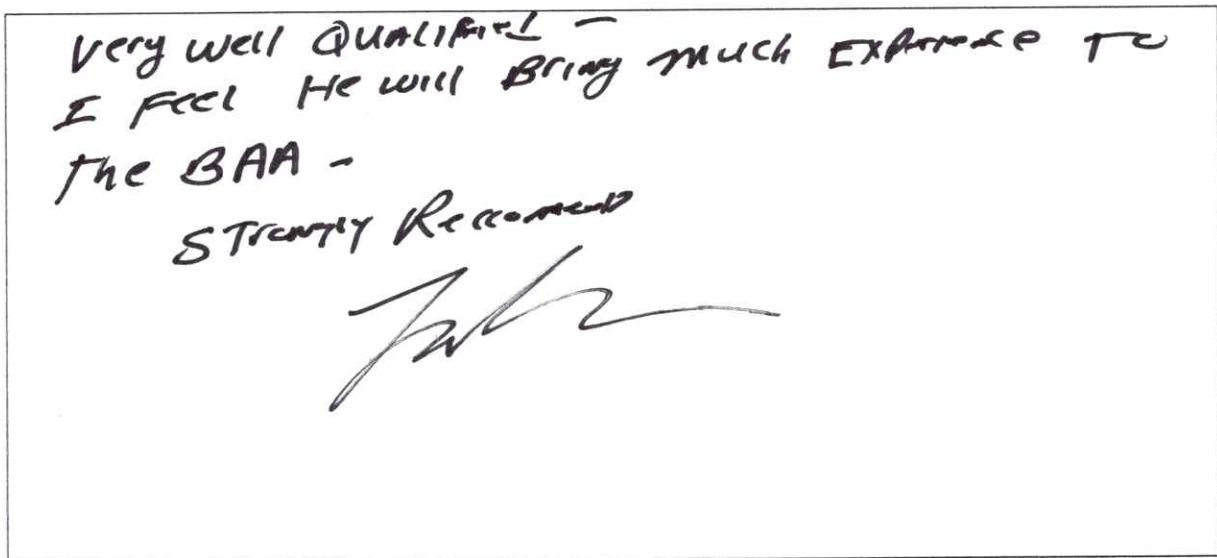 Very well QUALIFIED -
I FEEL He will Bring much EXPERIENCE TO
The BAA -
STrongly Reccomend